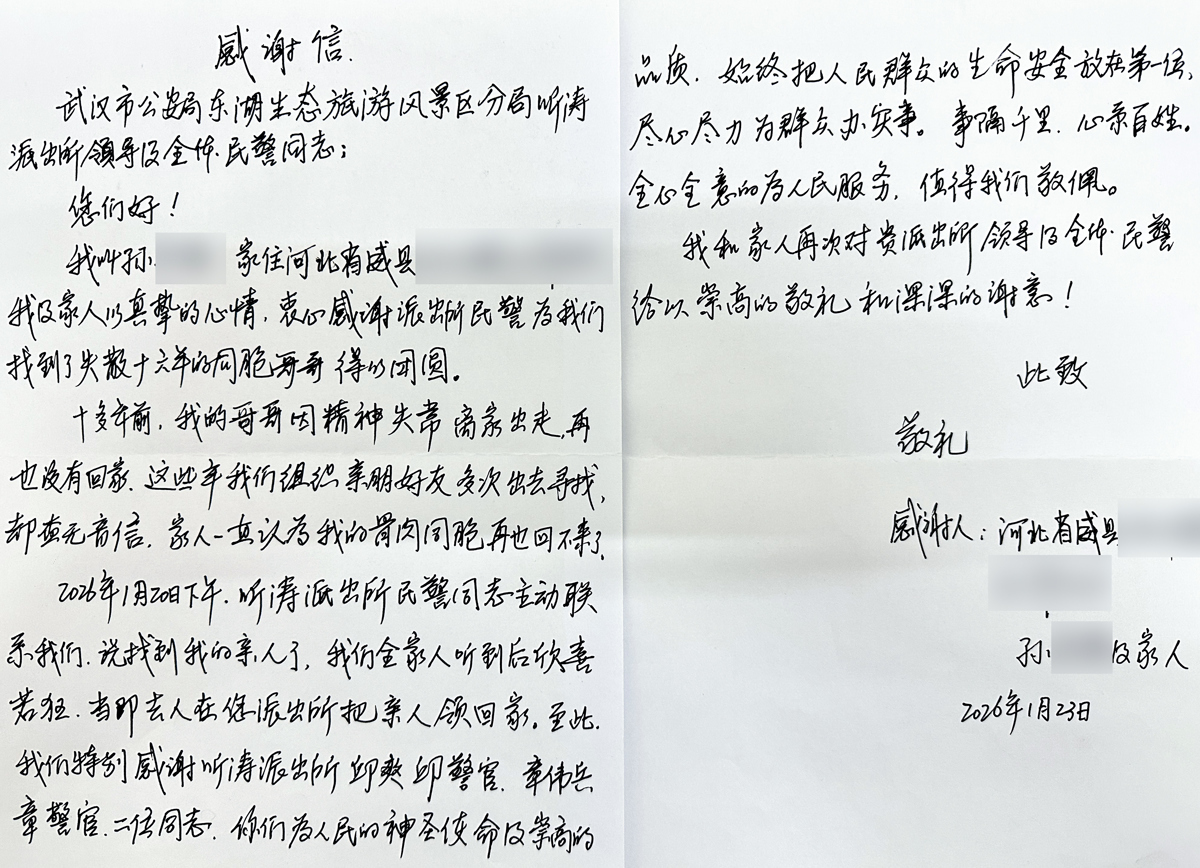 感谢信.
武汉市公安局东湖生态旅游风景区分局听涛
派出所领导及全体民警同志：
您们好！
我叫孙 家住河北省威县
我及家人以真挚的心情，衷心感谢派出所民警为我们
找到了失散十六年的同胞哥哥得以团圆。
十多年前，我的哥哥因精神失常离家出走，再
也没有回家，这些年我们组织亲朋好友多次出去寻找，
却查无音信，家人一直认为我的骨肉同胞再也回不来了，
2026年1月20日下午，听涛派出所民警同志主动联
系我们，说找到我的亲人了，我们全家人听到后欣喜
若狂，当即去人在您派出所把亲人领回家。至此，
我们特别感谢听涛派出所邱爽邱警官，章伟兵
章警官，二位同志，你们为人民的神圣使命及崇高的
品质，始终把人民群众的生命安全放在第一位，
尽心尽力为群众办实事。事隔千里，心系百姓，
全心全意的为人民服务，值得我们敬佩。
我和家人再次对贵派出所领导及全体民警
给以崇高的敬礼和深深的谢意！
此致
敬礼
感谢人：河北省威县
孙 及家人
2026年1月23日